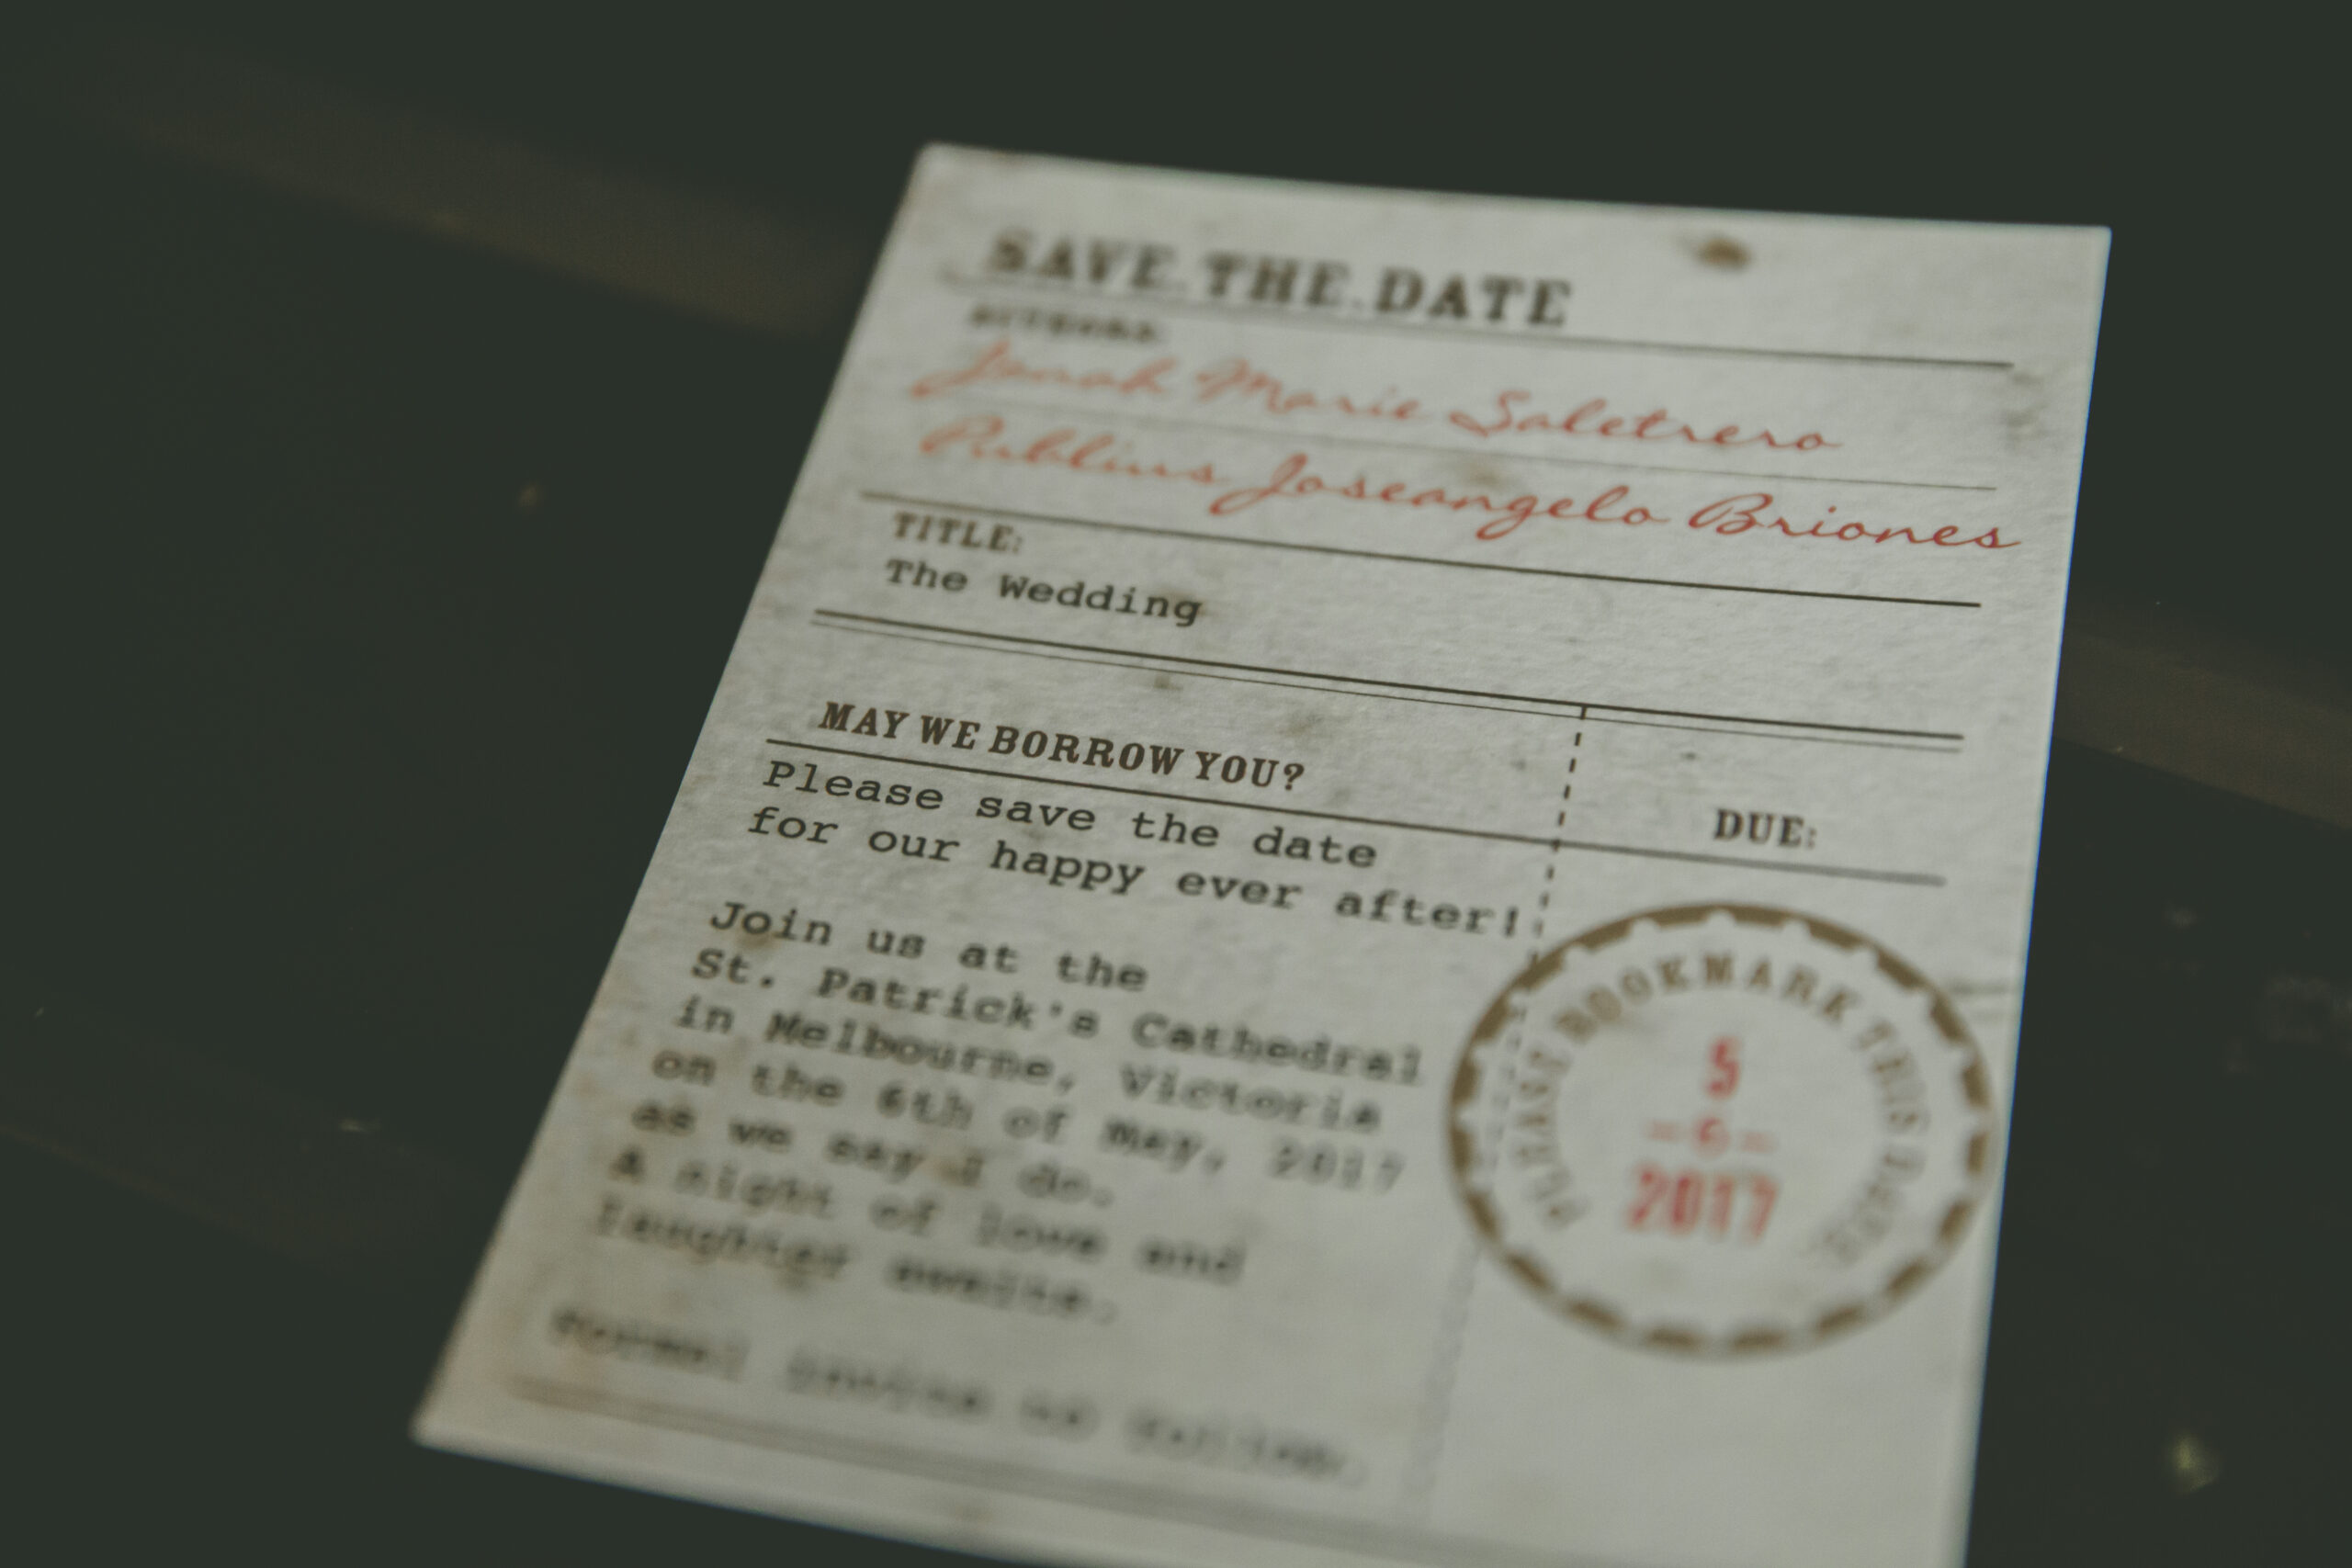 SAVE.THE.DATE
AUTHORS:
Jonah Marie Saletrero
Publius Joseangelo Briones
TITLE:
The Wedding
MAY WE BORROW YOU?
DUE:
Please save the date
for our happy ever after!
Join us at the
St. Patrick's Cathedral
in Melbourne, Victoria
on the 6th of May, 2017
as we say I do.
A night of love and
laughter awaits.
Formal invite to follow.
PLEASE BOOKMARK THIS DATE
5
-6-
2017